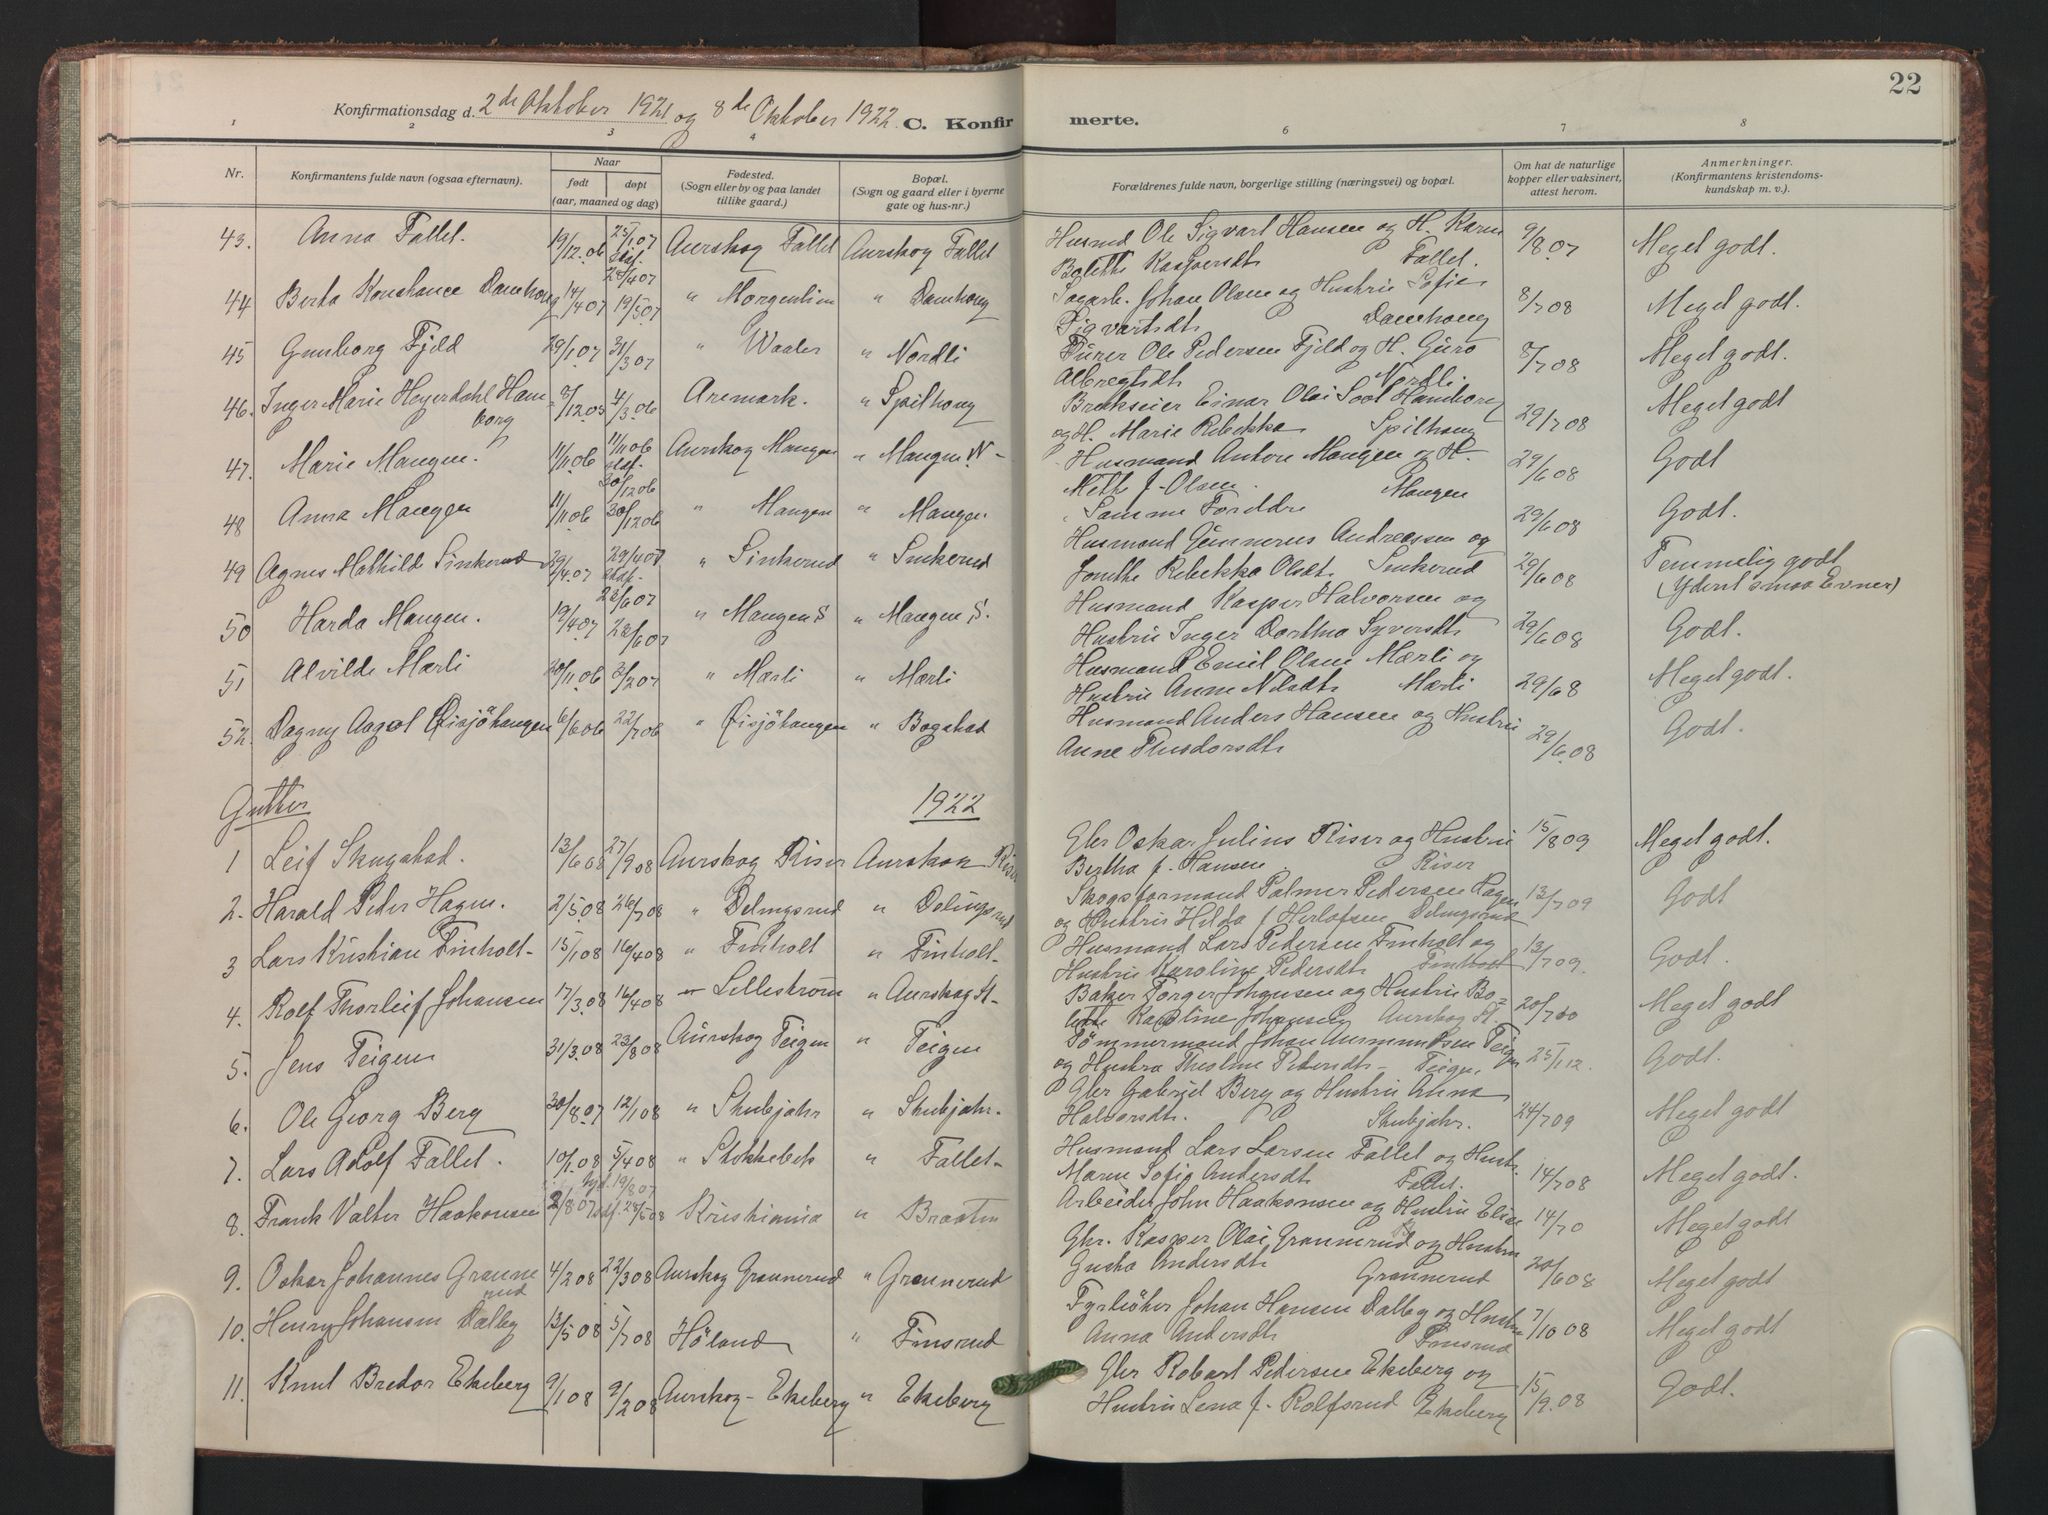 22
Konfirmationsdag d. 2de Oktober 1921 og 8de Oktober 1922. C. Konfirmerte.
1 2 3 4 6 7 8
Nr.
Konfirmantens fulde navn (ogsaa efternavn).
Naar
født døpt
(aar, maaned og dag)
Fødested.
(Sogn eller by og paa landet
tillike gaard.)
Bopæl.
(Sogn og gaard eller i byerne
gate og hus-nr.)
Forældrenes fulde navn, borgerlige stilling (næringsvei) og bopæl.
Om hat de naturlige
kopper eller vaksinert,
attest herom.
Anmerkninger.
(Konfirmantens kristendoms-
kundskap m. v.).
43. Anna Fallet. 19/12.06 25/1.07 Aurskog Fallet Aurskog Fallet Ole Sigvart Hansen og H. Karen 9/8.07 Meget godt.
Kaspersdt Fallet.
44 Berta Konstance Damhoug 14/4 07 19/5.07 " Morgenlien " Damhoug Sagarb. Johan Olsen og Hustru Sofie 8/7 08 Meget godt.
Sigvartsdt Damhoug
45 Gunborg Fjeld 29/1.07 31/3 07 " Waaler " Nordli Ole Pedersen Fjeld og H. Guro 8/7 08 Meget godt.
Albregtsdt Nordli.
46. Inger Marie Heyerdahl Ham= 4/3.06 Aremark. " Spilhoug Brukseier Einar Olai Hamborg 29/7 08 Meget godt
borg og H. Marie Rebekka Spilhoug
47. Marie Mangen. 11/11.06 11/11 06 Aurskog Mangen " Mangen N- Husmand Anton Mangen og H. 29/6 08 Godt
30/12 06 Olsen. Mangen
48 Anna Mangen 11/11.06 30/12 06 " Mangen " Mangen. Samme Foreldre 29/6 08 Godt.
49 Agnes Mathilde Sinkerud 29/4.07 29/4 07 " Sinkerud " Sinkerud Husmand Gunnerus Andreassen og 29/6 08 Temmelig godt
22/6 07 Rebekka Olsdt Sinkerud (Yderst smaa Evner)
50 Harda Mangen. 19/4.07 22/6 07 " Mangen S " Mangen S. Husmand Kasper Halvorsen og 29/6 08 Godt.
Hustru Inger Dorthea Syversdt
51 Alvilde Mærli 30/11.06 3/2 07 " Mærli " Mærli Husmand Emil Olsen Mærli og 29/6 8 Meget godt.
Hustru Anne Nilsdt Mærli
52. Dagny Aagot Øisjöhaugen 6/6 06 22/7 06 " Øisjöhaugen " Bogstad Husmand Anders Hansen og Hustru 29/6.08 Godt.
Anne
Gutter 1922
1 Leif Skugstad. 13/6 08 27/9 08 Aurskog Riser Aurskog Riser Gbr Oskar Julius Riser og Hustru 15/8 09 Meget godt.
Bertha f. Hansen Riser
2. Harald Peder Hagen. 2/5.08 26/7 08 " Delingsrud " Delingsrud Skogsformand Palmer Pedersen Hagen 13/7 09 Godt
og Hustru Hilda f. Herlofsen Delingsrud
3 Lars Kristian Finholt- 15/1 08 16/4 08 " Finholt " Finholt- Husmand Lars Pedersen Finholt og 13/7 09. Godt.
Hustru Karoline Pedersdt Finholt
4. Rolf Thorleif Johansen 17/3.08 16/4 08 Lillestrøm " Aurskog St- Baker Torger Johansen og Hustru Bo= Meget godt
Karoline Johansen Aurskog St.
5. Jens Teigen 31/3.08 23/8 08 Aurskog Teigen " Teigen Tömmermand Johan Teigen 25/1 12. Godt.
og Hustru Pedersdt- Teigen.
6. Ole Georg Berg 30/8.07 12/1 08 " Skubjahr " Skubjahr- Gbr Gabriel Berg og Hustru Anna 24/7 09 Meget godt
Halvorsdt. Skubjahr.
7. Lars Adolf Fallet. 10/1.08 5/4 08 " Stokkebæk " Fallet- Husmand Lars Larsen Fallet og Hustr. 14/7 08 Meget godt.
19/8 07 Maren Sofie Andersdt Fallet.
8. Frank Valter Haakonsen 2/8 07 28/5 08 Kristiania " Braaten Arbeider John Haakonsen og Hustru Elise 14/7 0 Meget godt
9. Oskar Johannes Grønne 4/2 08 22/3 08 Aurskog Grønnerud " Grønnerud Gbr. Kasper Olai Grønnerud og Hustru 20/6 08 Meget godt
rud Gusta Andersdt Grønnerud
10. Henry Johansen Dalby 13/5 08 5/7 08 Höland " Finsrud Fyrböter Johan Hansen Dalby og Hustru 7/10 08 Meget godt
Anna Andersdt Finsrud
11. Knut Bredor Ekeberg 9/1 08 9/2 08 Aurskog- Ekeberg " Ekeberg Gbr Robart Pedersen Ekeberg og 15/9.08 Godt.
Hustru Lena f. Rolfsrud Ekeberg